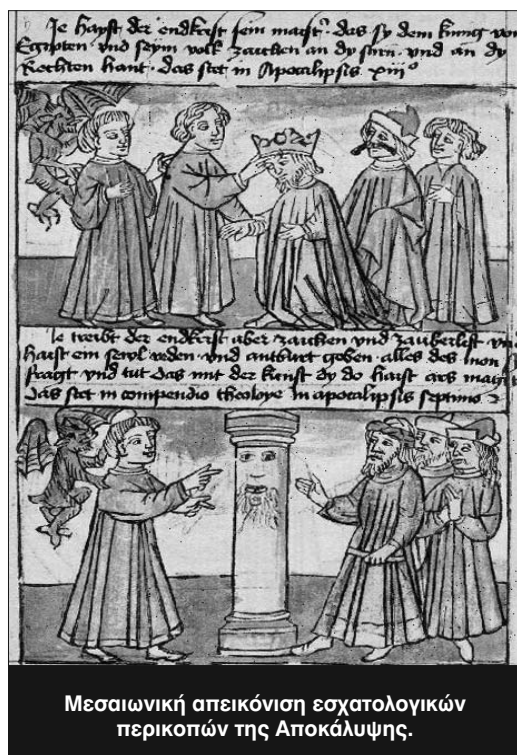 Je hayst der endkrist sein maist das sy dem kunig von
Egipten vnd seym volk zaichen an dy stirn vnd an dy
Rechten hant das stet in Apocalipsis xiii°
Je treibt der endkrist aber zaichen vnd zauberlist vnd
haist ein sewl reden vnd antburt geben alles des man
fragt vnd tut das mit der kunst dy do haist ars
das stet in compendio theoloye in apocalipsis septimo
Μεσαιωνική απεικόνιση εσχατολογικών
περικοπών της Αποκάλυψης.